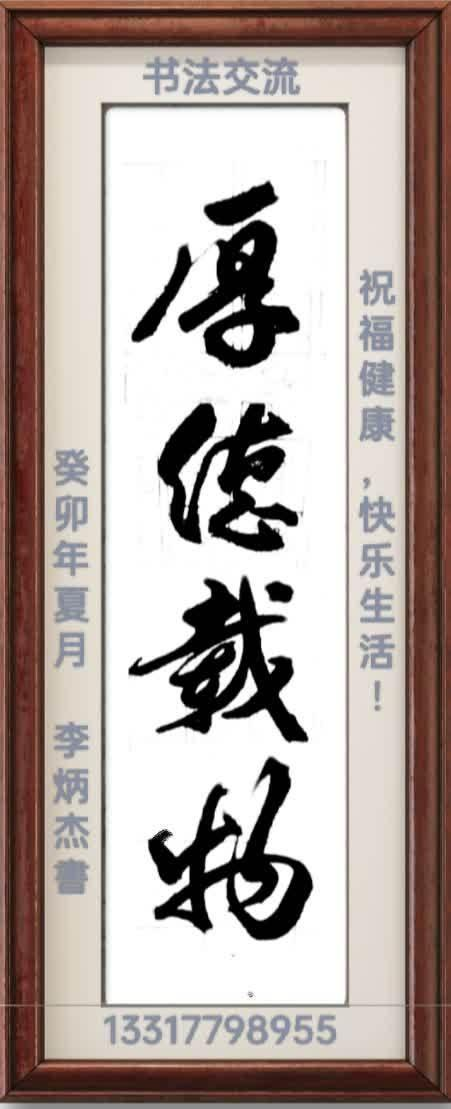 书法交流
祝福健康,快乐生活!
厚德载物
癸卯年夏月 李炳杰書
13317798955